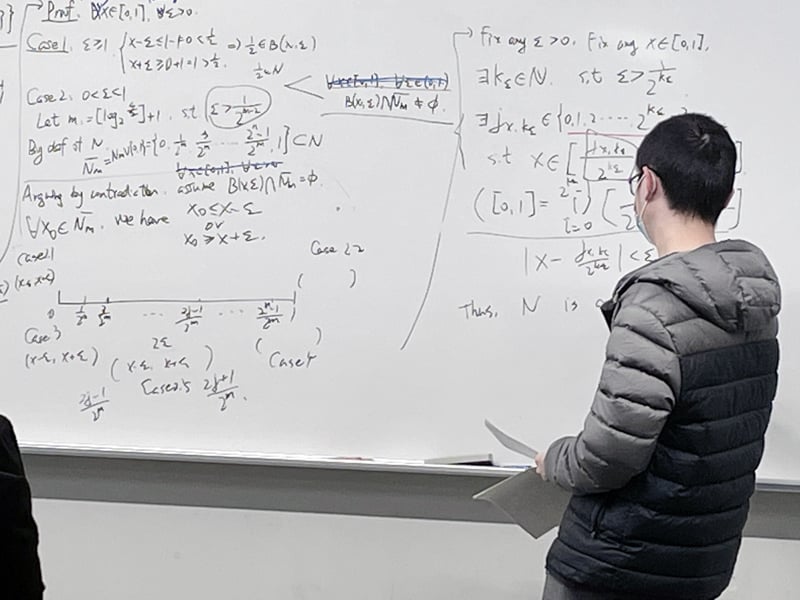 Proof. ∀x∈[0,1], ∀ε>0.
Case 1. ε≥1. { x-ε≤1-1=0<1/2
x+ε≥0+1=1>1/2. ⇒ 1/2∈B(x,ε)
1/2∈N
Case 2. 0<ε<1
Let m:=[log₂ ]+1, s.t. ε>1/2^{m-2}
By def of N
N̄m=Nm∪{0,1}={0, 1/2^m, 3/2^m ... (2^m-1)/2^m, 1}⊂N
∀x∈[0,1], ∀ε∈(0,1)
B(x,ε)∩N̄m≠∅.
∀x∈[0,1], ∀ε>0
Arguing by contradiction, assume B(x,ε)∩N̄m=∅.
∀x₀∈N̄m, we have x₀≤x-ε
or
x₀≥x+ε.
Case 2.1
Case 2.2
(x-ε, x+ε)
( )
0 1/2^m 3/2^m ... (2j-1)/2^m ... (2^m-1)/2^m
Case 3
2ε
(x-ε, x+ε) ( x-ε, x+ε ) ( )
Case 4
Case 2.5
(2j-1)/2^m (2j+1)/2^m.
Fix any ε>0. Fix any x∈[0,1],
∃kε∈N. s.t ε>1/2^{kε}
∃jx,kε∈{0,1,2.....2^{kε}
s.t x∈[ jx,kε/2^{kε}
([0,1]= ∪ i=0
|x- jx,kε/2^{kε}|<ε
Thus, N is